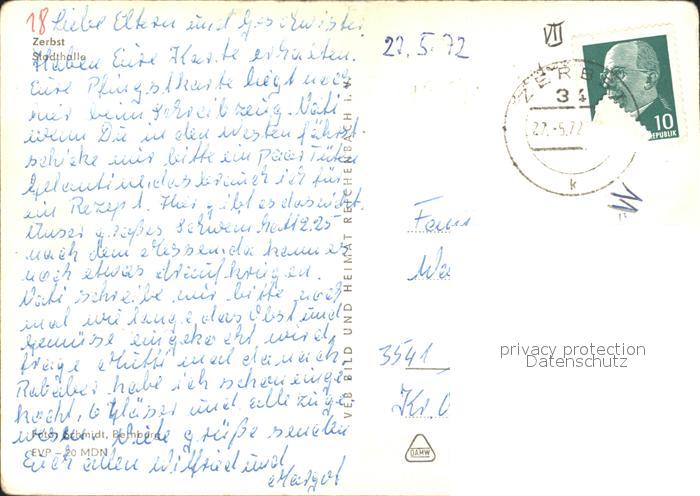 18 Liebe Eltern und Geschwister
Zerbst
Stadthalle
Haben Eure Karte erhalten.
Eure Pfingstkarte liegt noch
mir beim Schreibzeug. Vati
wenn Du in den Westen fährst
schicke mir bitte ein Paar Tüten
Gelantine, das brauch ich für
ein Rezept. Hier gibt es das nicht.
Unser großes Schwein hat 2.25
nach dem Messen, da kann er
noch etwas draufkriegen.
Vati schreibe mir bitte noch
mal wie lange das Obst und
Gemüse eingekocht wird,
frage Mutti mal danach.
Rababer habe ich schon einge-
kocht, 6 Gläser und alle zuge-
Viele Grüße senden
Foto: Schmidt, Bernburg
EVP – 20 MDN
Euch allen Wilfried und
Margot
VEB BILD UND HEIMAT REICHENBACH i. V.
27.5.72
VII
ZERBST
34
27.-5.72
k
10
REPUBLIK
11
3541
Kr.
DAMW
privacy protection
Datenschutz